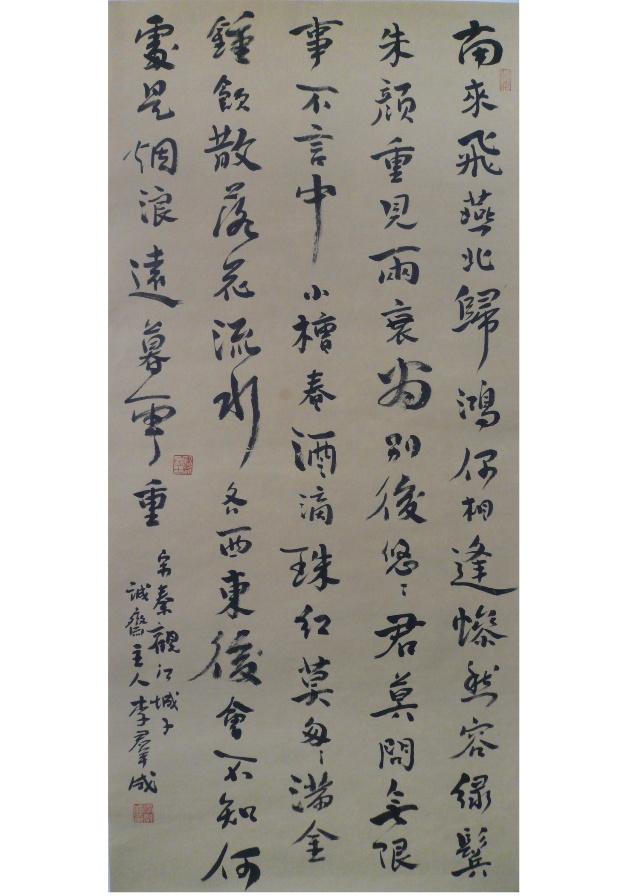 南來飛燕北歸鴻偶相逢慘愁容緑鬢
朱顏重見兩衰翁別後悠〻君莫問無限
事不言中小槽春酒滴珠紅莫匆〻滿金
鍾飲散落花流水各西東後會不知何
處是烟浪遠暮雲重
宋秦觀江城子
誠齋主人李羣成